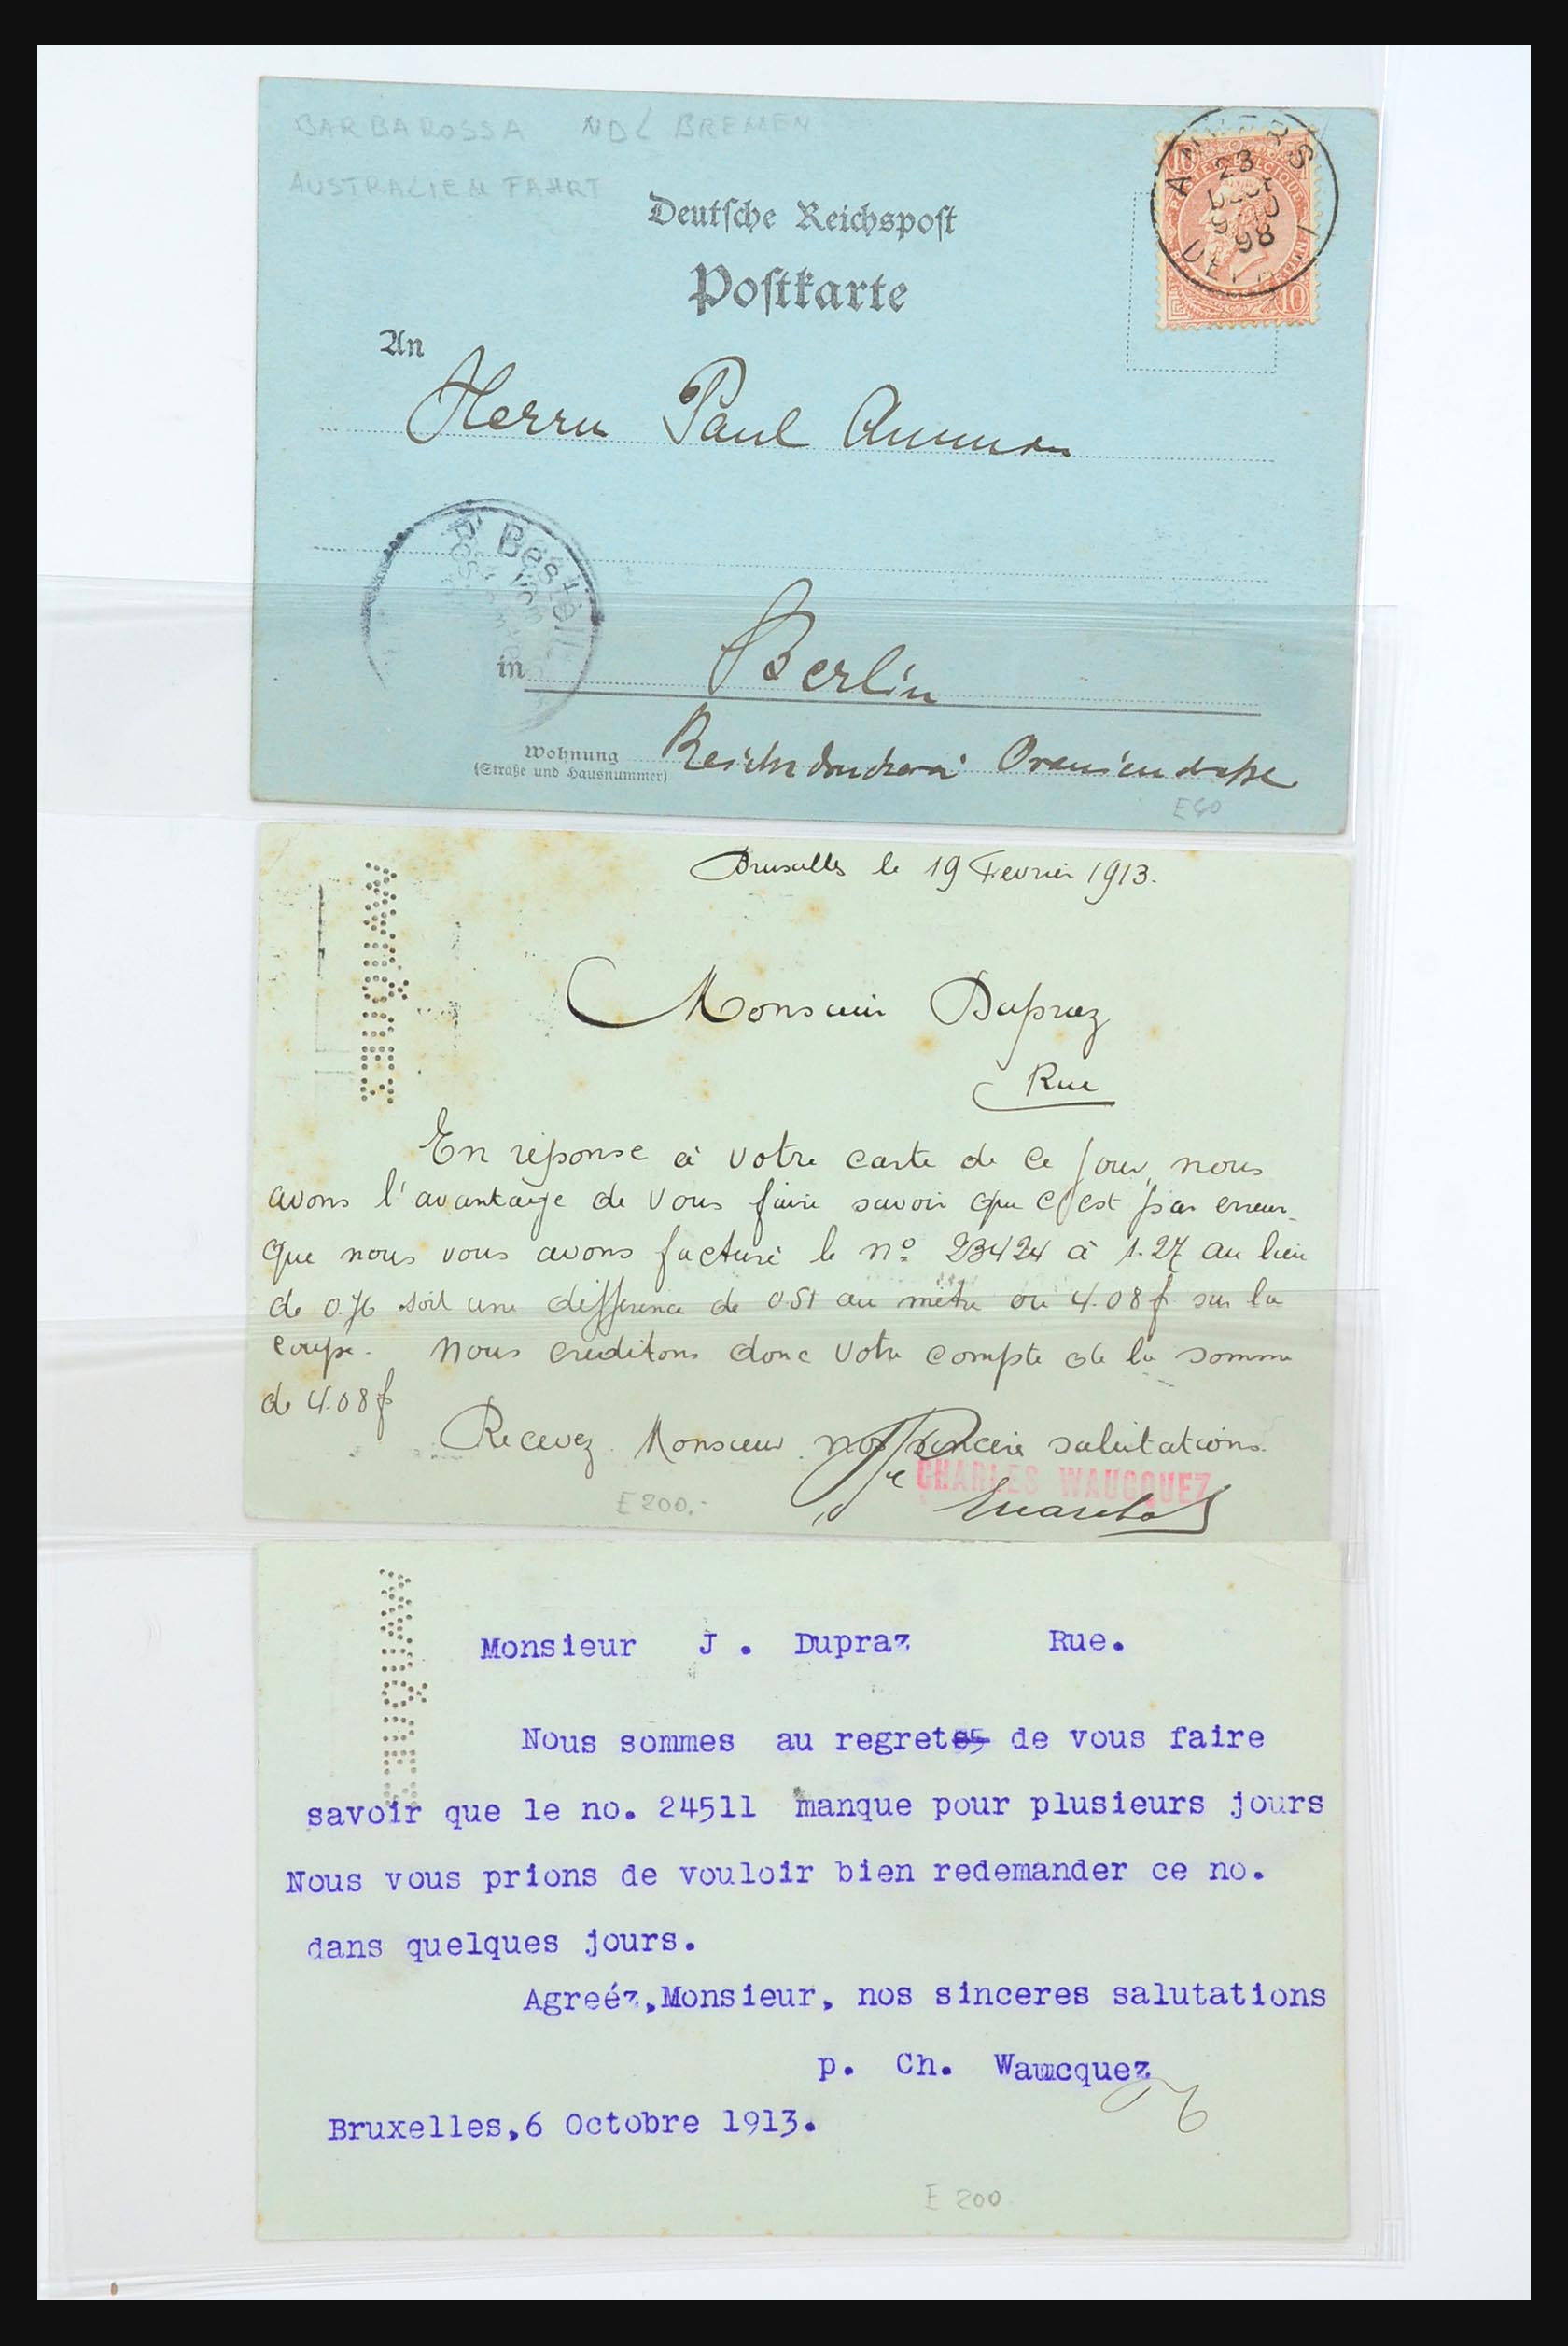 BARBAROSSA NDL BREMEN
AUSTRALIEN FAHRT
Deutsche Reichspost
Postkarte
10 10
ANVERS
23
98
An
Herrn Paul
Bestellt
vom
Postamte
in Berlin
Wohnung
(Straße und Hausnummer)
E60
Bruxelles le 19 Fevrier 1913.
WAUQUEZ
Monsieur Dupraz
Rue
En réponse à votre carte de ce jour, nous
avons l'avantage de vous faire savoir que c'est par erreur
que nous vous avons facturé le nº 23424 à 1.27 au lieu
de 0.76 soit une différence de 0.51 au mètre ou 4.08 f sur la
coupe. Nous créditons donc votre compte de la somme
de 4.08 f
Recevez Monsieur nos sincère salutations.
CHARLES WAUCQUEZ
E 200.-
Monsieur J. Dupraz Rue.
Nous sommes au regret de vous faire
savoir que le no. 24511 manque pour plusieurs jours
Nous vous prions de vouloir bien redemander ce no.
dans quelques jours.
Agreéz,Monsieur, nos sinceres salutations
p. Ch. Waucquez
Bruxelles,6 Octobre 1913.
E 200